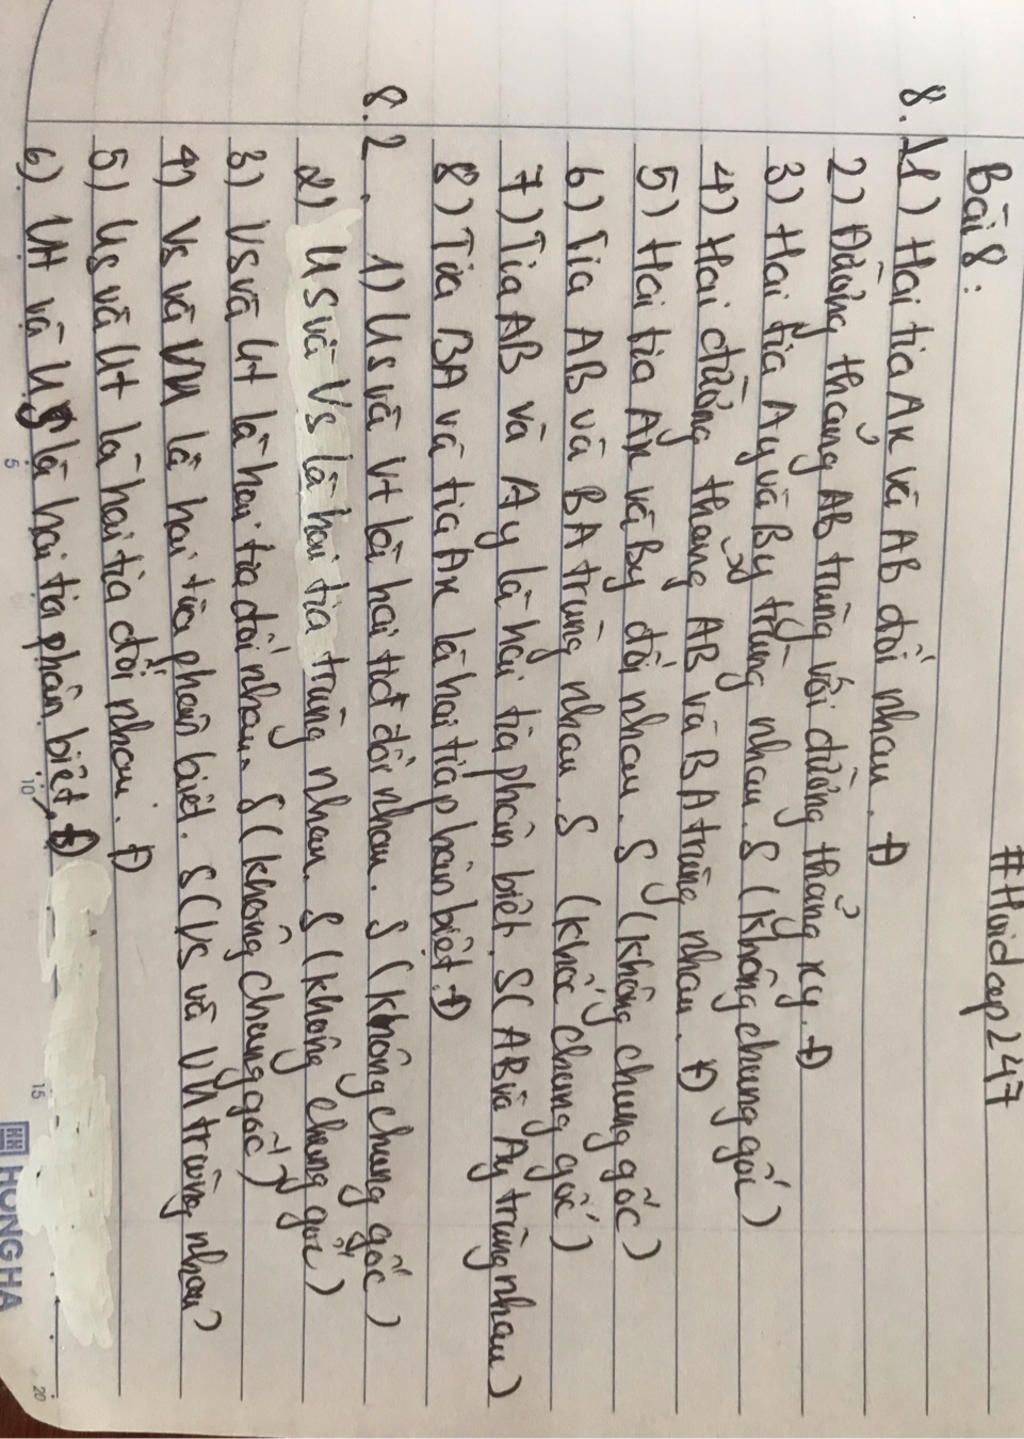 #Hoidap247
Bài 8:
8.1 1) Hai tia Ax và AB đối nhau. Đ
2) Đường thẳng AB trùng với đường thẳng xy. Đ
3) Hai tia Ay và By trùng nhau. S (không chung gốc)
4) Hai đường thẳng AB và BA trùng nhau. Đ
5) Hai tia Ax và By đối nhau. S (không chung gốc)
6) Tia AB và BA trùng nhau. S (khôc chung gốc)
7) Tia AB và Ay là hai tia phân biệt. S( AB và Ay trùng nhau)
8) Tia BA và tia Ax là hai tia phân biệt. Đ
8.2. 1) Us và Vt là hai đối nhau. S (không chung gốc)
2) Us và Vs là hai tia trùng nhau. S (không chung gốc)
3) Vs và Ut là hai tia đối nhau. S (không chung gốc)
4) Vs và VU là hai tia phân biệt. S (Vs và VU trùng nhau)
5) Us và Ut là hai tia đối nhau. Đ
6) Ut và Us là hai tia phân biệt. Đ
5
10
15
20
HH HONG HA